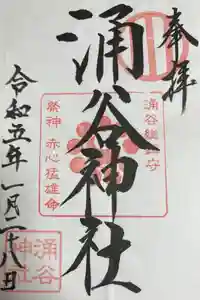 奉拝
涌谷神社
涌谷総鎮守
祭神 赤心猛雄命
令和五年一月二十八日
涌谷
神社